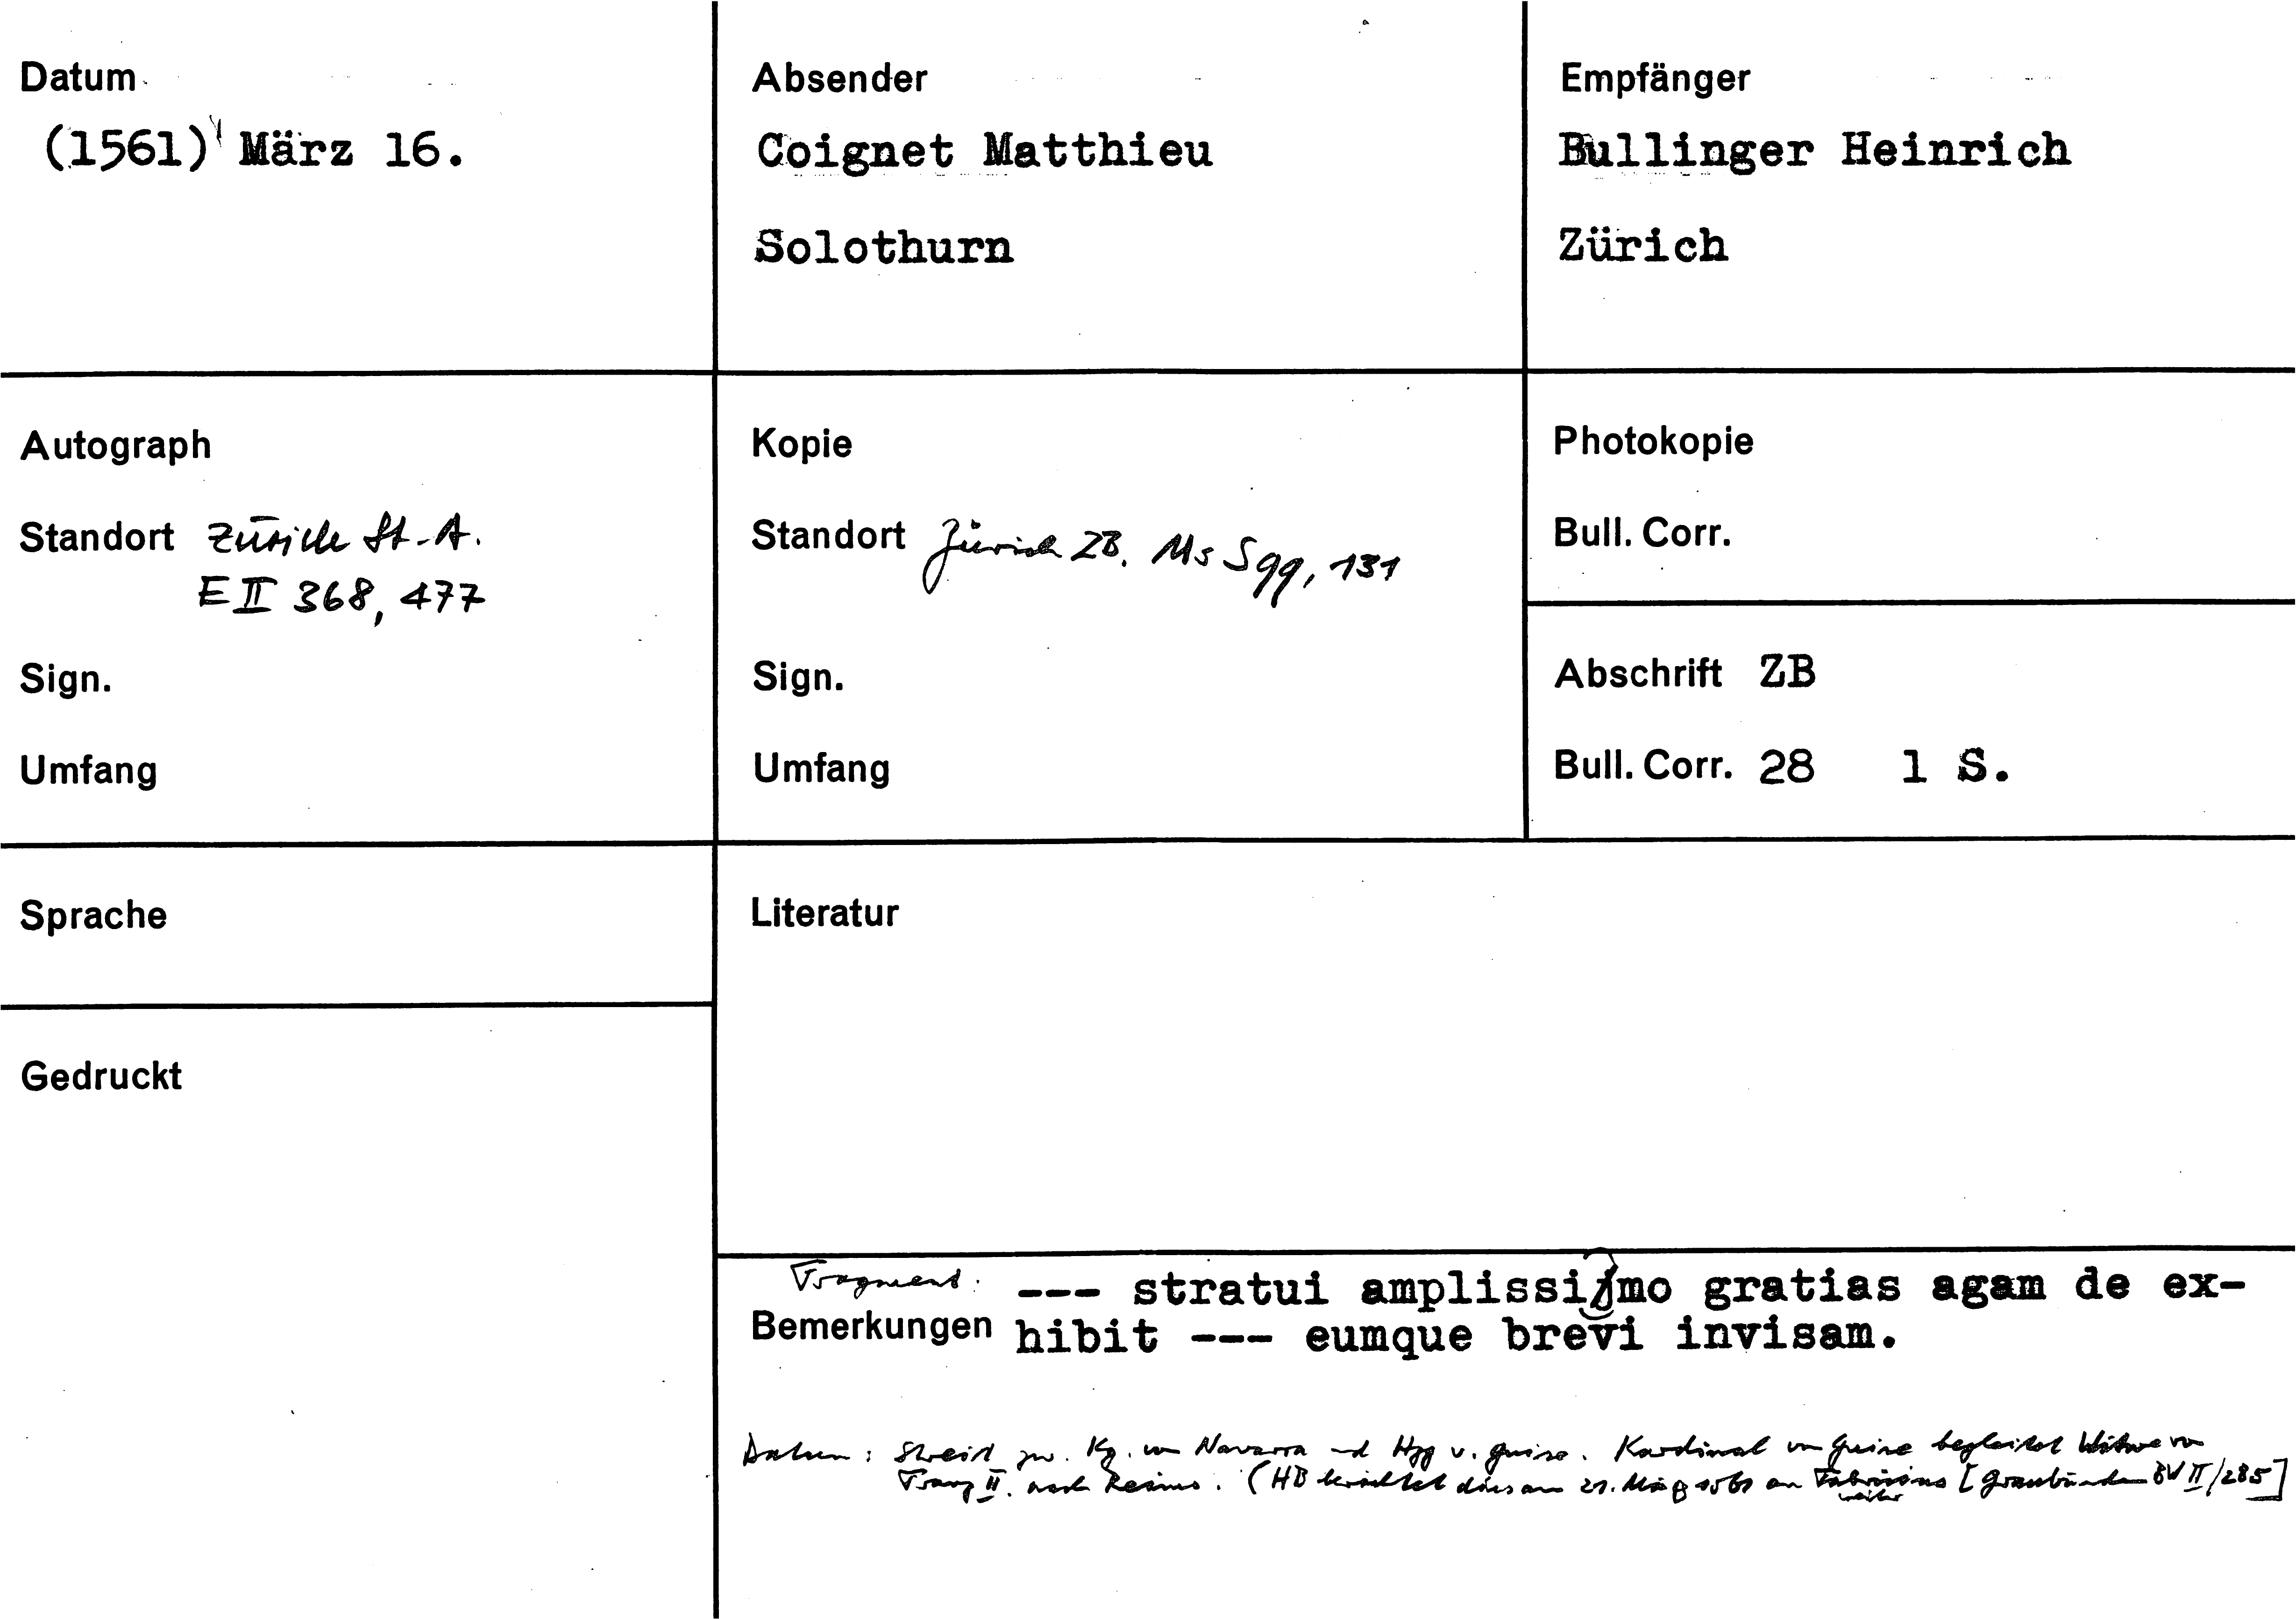 Datum
(1561) März 16.
Absender
Coignet Matthieu
Solothurn
Empfänger
Bullinger Heinrich
Zürich
Autograph
Standort Zürich St.-A.
E II 368, 477
Sign.
Umfang
Kopie
Standort Zürich ZB. Ms S 99, 131
Sign.
Umfang
Photokopie
Bull. Corr.
Abschrift ZB
Bull. Corr. 28 1 S.
Sprache
Literatur
Gedruckt
Fragment: --- stratui amplissimo gratias agam de ex-
Bemerkungen hibit --- eumque brevi invisam.
Datum: Streit zw. Kg. von Navarra und Hzg v. Guise. Kardinal von Guise begleitet Witwe von
Franz II. nach Reims. (HB berichtet dies am 21. März 1561 an Fabricius weiter [Graubünden BW II/285]